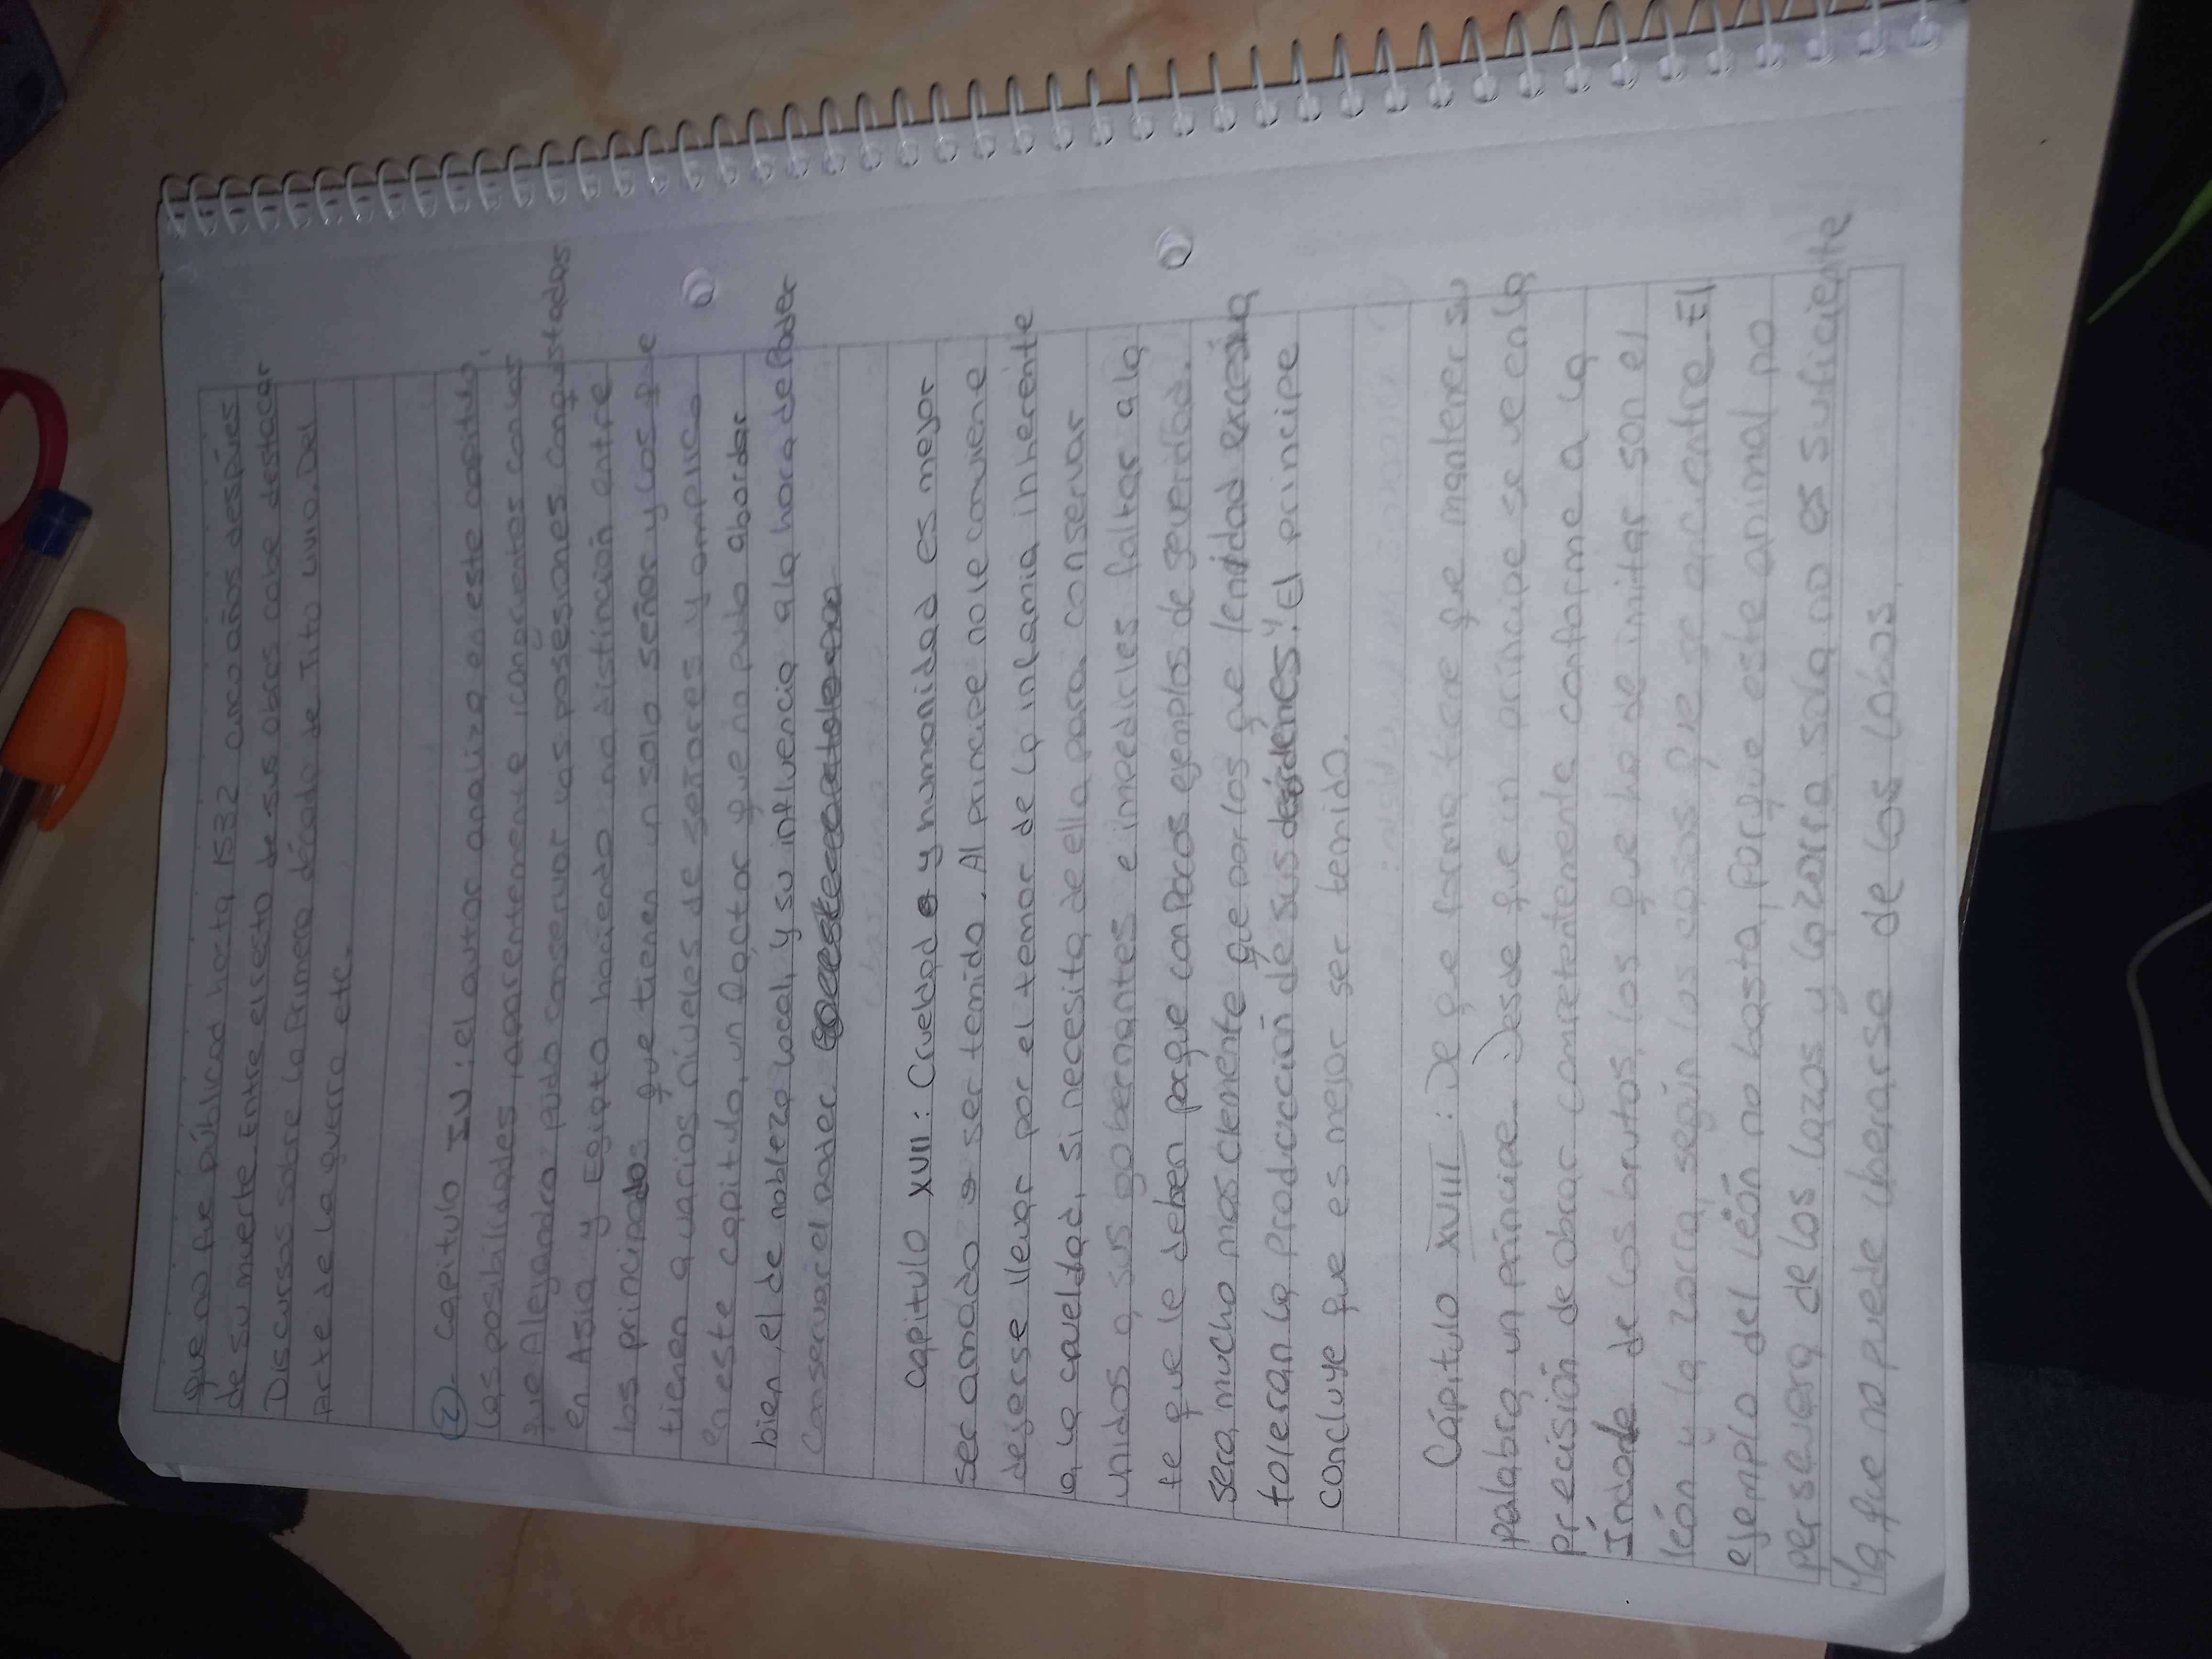 que no fue públicad hasta 1532 cinco años despúes
de su muerte. Entre el resto de sus obras cabe destacar
Discursos sobre la Primera década de Tito Livio. Del
Arte de la guerra etc.
2- Capitulo IV: el autor analiza en este capitulo,
las posibilidades, aparentemente icongruentes con las
que Alejandro pudo conservar las posesiones conqustadas
en Asia y Egipto haciendo una distinción entre
los principados que tienen un solo señor y los que
tienen a varios niveles de señores y amplica
en este capitulo, un factor que no pudo abordar
bien, el de nobleza local, y su influencia a la hora de Poder
Conservar el poder.
Capitulo XVII: Crueldad y humanidad es mejor
ser amado o ser temido. Al principe no le conviene
dejerse llevar por el temor de la infamia inherente
a la crueldad, si necesita de ella para conservar
unidos a sus gobernantes e impedirles faltar a la
fe que le deben porque con Pocos ejemplos de severidad.
sera mucho mas clemente que por los que lenidad excesiva
toleran la producción de sus desórdenes." El principe
concluye que es mejor ser temido.
Cápitulo XVIII: De que forma tiene que mantener su
palabra un principe. Desde que un príncipe se ve en la
precisión de obrar competentemente conforme a la
Índole de los brutos, los que ha de imitar son el
león y la zorra, según los casos que se encuentre El
ejemplo del león no basta, porque este animal no
perservera de los lazos y la zorra sola no es suficiente
Ya que no puede liberarse de los lobos.